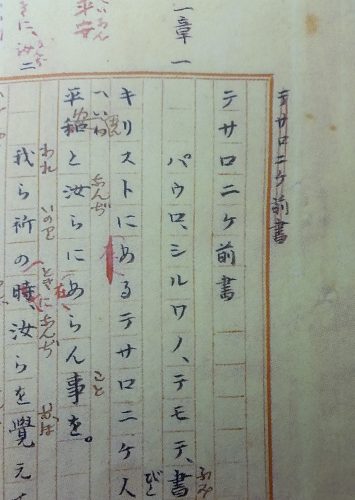 テサロニケ前書
一章一
テサロニケ前書
パウロ、シルワノ、テモテ、書
ふみ
キリストにあるテサロニケ人
びと
平安
へいあん
平和と汝らにあらん事を。
へいわ なんぢ こと
きに、汝二
我ら祈の時、汝らを覺え
われ いのり ときになんぢ おぼ